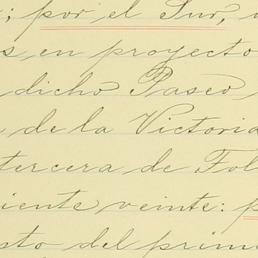 ; por el Sur,
s en proyecto
dicho Paseo
de la Victoria
tercera de Fol
iente veinte: p
sto del prim